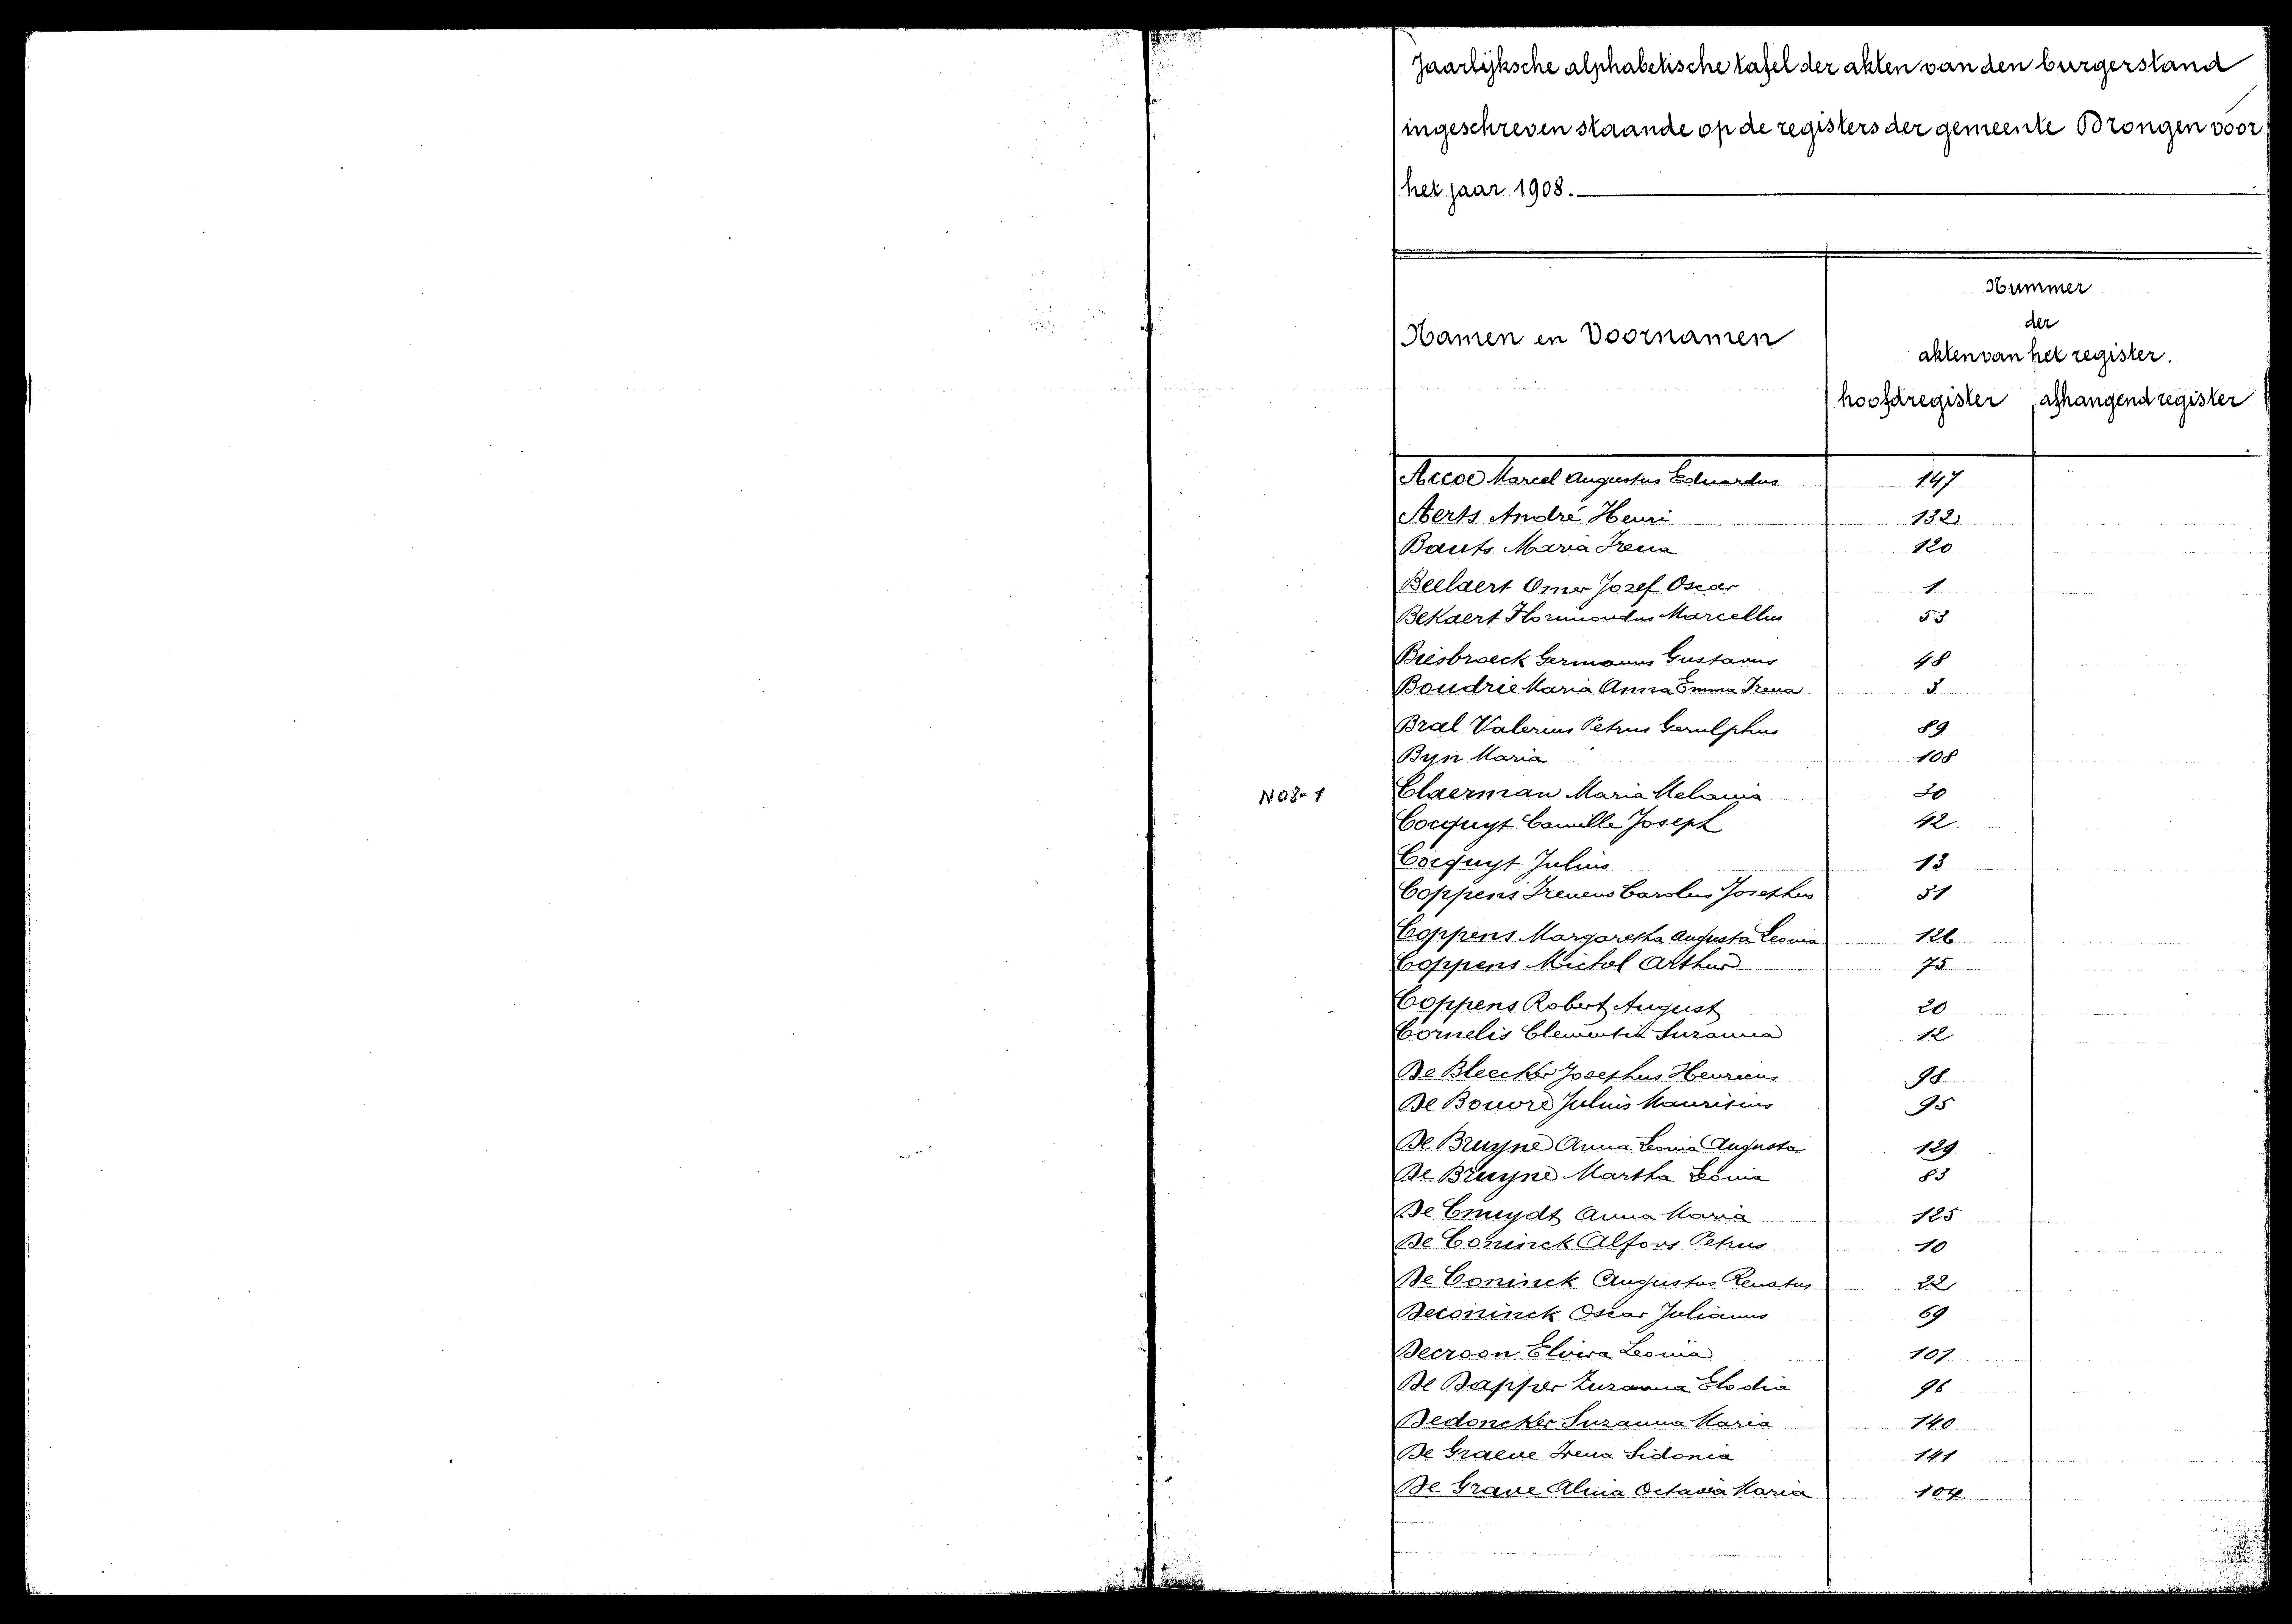 Jaarlijksche alphabetische tafel der akten van den burgerstand
ingeschreven staande op de registers der gemeente Drongen voor
het jaar 1908.
Namen en Voornamen
Nummer
der
akten van het register.
hoofdregister afhangend register
Accoe Marcel Augustus Eduardus 147
Aerts André Henri 132
Bauts Maria Irena 120
Beelaert Omer Jozef Oscar 1
Bekaert Florimondus Marcellus 53
Biesbroeck Germanus Gustavus 48
Boudrie Maria Anna Emma Irena 3
Bral Valerius Petrus Gerulphus 89
Byn Maria 108
N08-1
Claerman Maria Melania 30
Cocquyt Camille Joseph 42
Cocquyt Julius 13
Coppens Ireneus Carolus Josephus 51
Coppens Margaretha Augusta Leonia 126
Coppens Michel Arthur 75
Coppens Robert August 20
Cornelis Clementia Suzanna 12
De Bleecker Josephus Henricus 98
De Bouvre Julius Mauritius 95
De Bruyne Anna Leonia Augusta 129
De Bruyne Martha Leonia 83
De Cnuydt Anna Maria 125
De Coninck Alfons Petrus 10
De Coninck Augustus Renatus 22
Deconinck Oscar Julianus 69
Decroon Elvira Leonia 101
De Dapper Zuzanna Elodia 96
Dedoncker Suzanna Maria 140
De Graeve Irena Sidonia 141
De Grave Alina Octavia Maria 104